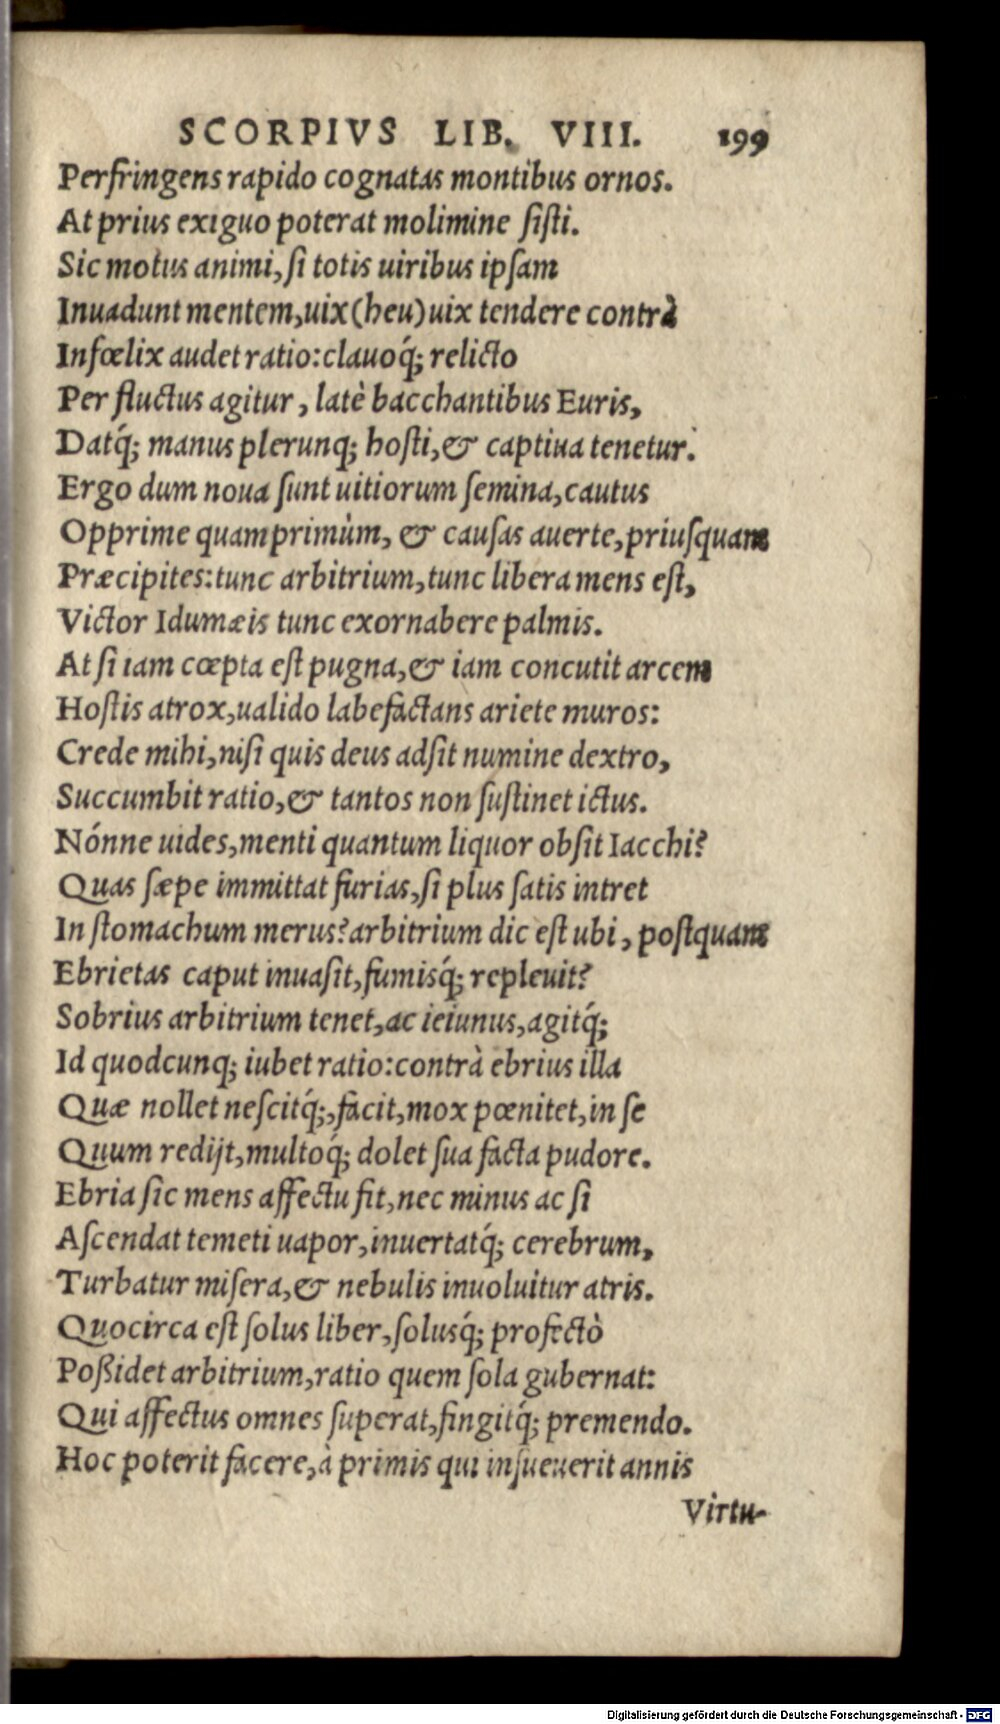 SCORPIVS LIB. VIII. 199
Perfringens rapido cognatas montibus ornos.
At prius exiguo poterat molimine ſiſti.
Sic motus animi, ſi totis uiribus ipſam
Inuadunt mentem, uix (heu) uix tendere contrà
Infœlix audet ratio: clauoq́; relicto
Per fluctus agitur, latè bacchantibus Euris,
Datq́; manus plerunq; hoſti, & captiua tenetur.
Ergo dum noua ſunt uitiorum ſemina, cautus
Opprime quamprimùm, & cauſas auerte, priuſquam
Præcipites: tunc arbitrium, tunc libera mens eſt,
Victor Idumæis tunc exornabere palmis.
At ſi iam cœpta eſt pugna, & iam concutit arcem
Hoſtis atrox, ualido labefactans ariete muros:
Crede mihi, niſi quis deus adſit numine dextro,
Succumbit ratio, & tantos non ſuſtinet ictus.
Nónne uides, menti quantum liquor obſit Iacchi?
Quas ſæpe immittat furias, ſi plus ſatis intret
In ſtomachum merus? arbitrium dic eſt ubi, poſtquam
Ebrietas caput inuaſit, fumisq́; repleuit?
Sobrius arbitrium tenet, ac ieiunus, agitq́;
Id quodcunq; iubet ratio: contrà ebrius illa
Quæ nollet neſcitq́;, facit, mox pœnitet, in ſe
Quum redijt, multoq́; dolet ſua facta pudore.
Ebria ſic mens affectu fit, nec minus ac ſi
Aſcendat temeti uapor, inuertatq́; cerebrum,
Turbatur miſera, & nebulis inuoluitur atris.
Quocirca eſt ſolus liber, ſolusq́; profectò
Poßidet arbitrium, ratio quem ſola gubernat:
Qui affectus omnes ſuperat, fingitq́; premendo.
Hoc poterit facere, à primis qui inſueuerit annis
Virtu-
Digitalisierung gefördert durch die Deutsche Forschungsgemeinschaft - DFG